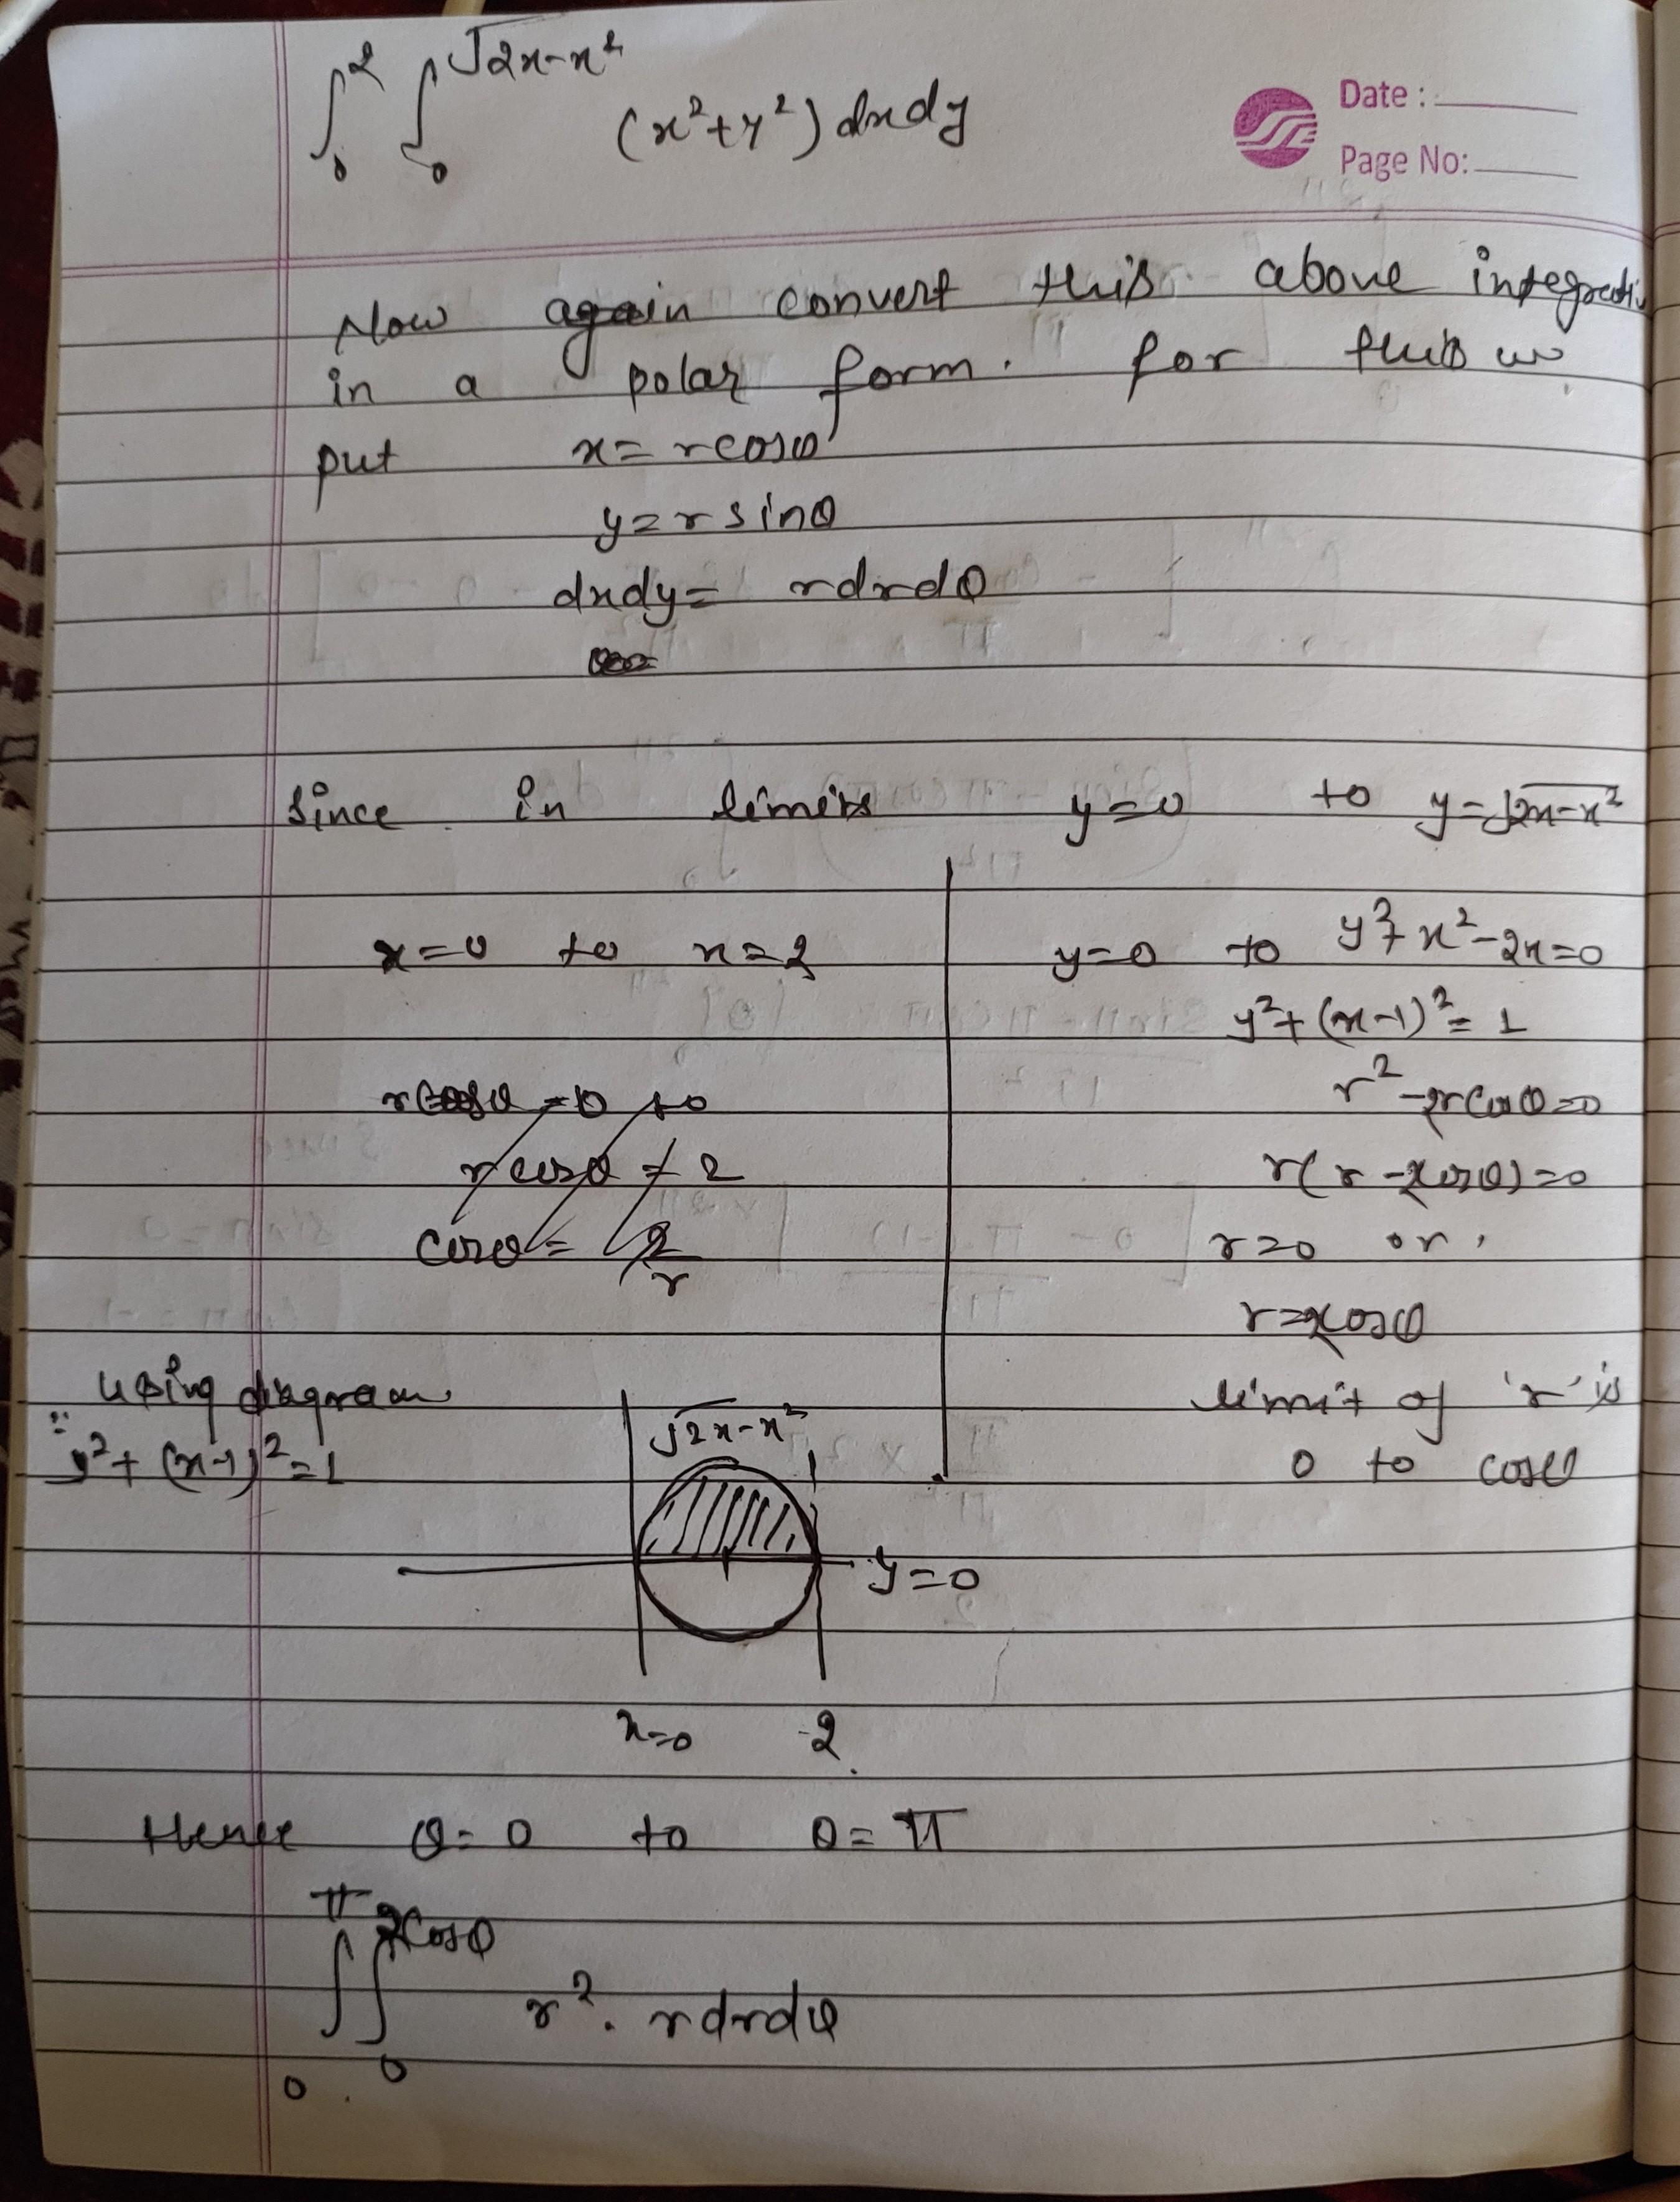 ∫₀² ∫₀^√(2x-x²) (x²+y²) dxdy
Date :
Page No:
Now again convert this above integrati
in a polar form. for this w
put x = rcosθ
y = r sinθ
dxdy = rdrdθ
Since in limits y=0 to y=√(2x-x²)
x=0 to x=2
rcosθ = 0 to
rcosθ = 2
cosθ = 2/r
y=0 to y²+x²-2x=0
y²+(x-1)²=1
r²-2rcosθ=0
r(r-2cosθ)=0
r=0 or
r=2cosθ
limit of 'r' is
0 to cosθ
using diagram
∵ y²+(x-1)²=1
√(2x-x²)
y=0
x=0 2
Hence θ=0 to θ=π
∫₀^π ∫₀^2cosθ r². rdrdθ